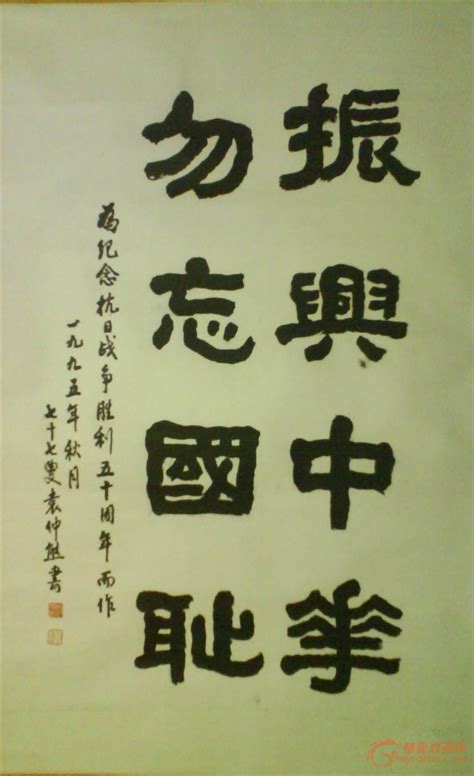 振興中華
勿忘國恥
為紀念抗日战争胜利五十周年而作
一九九五年秋月
七十七叟袁仲熊書